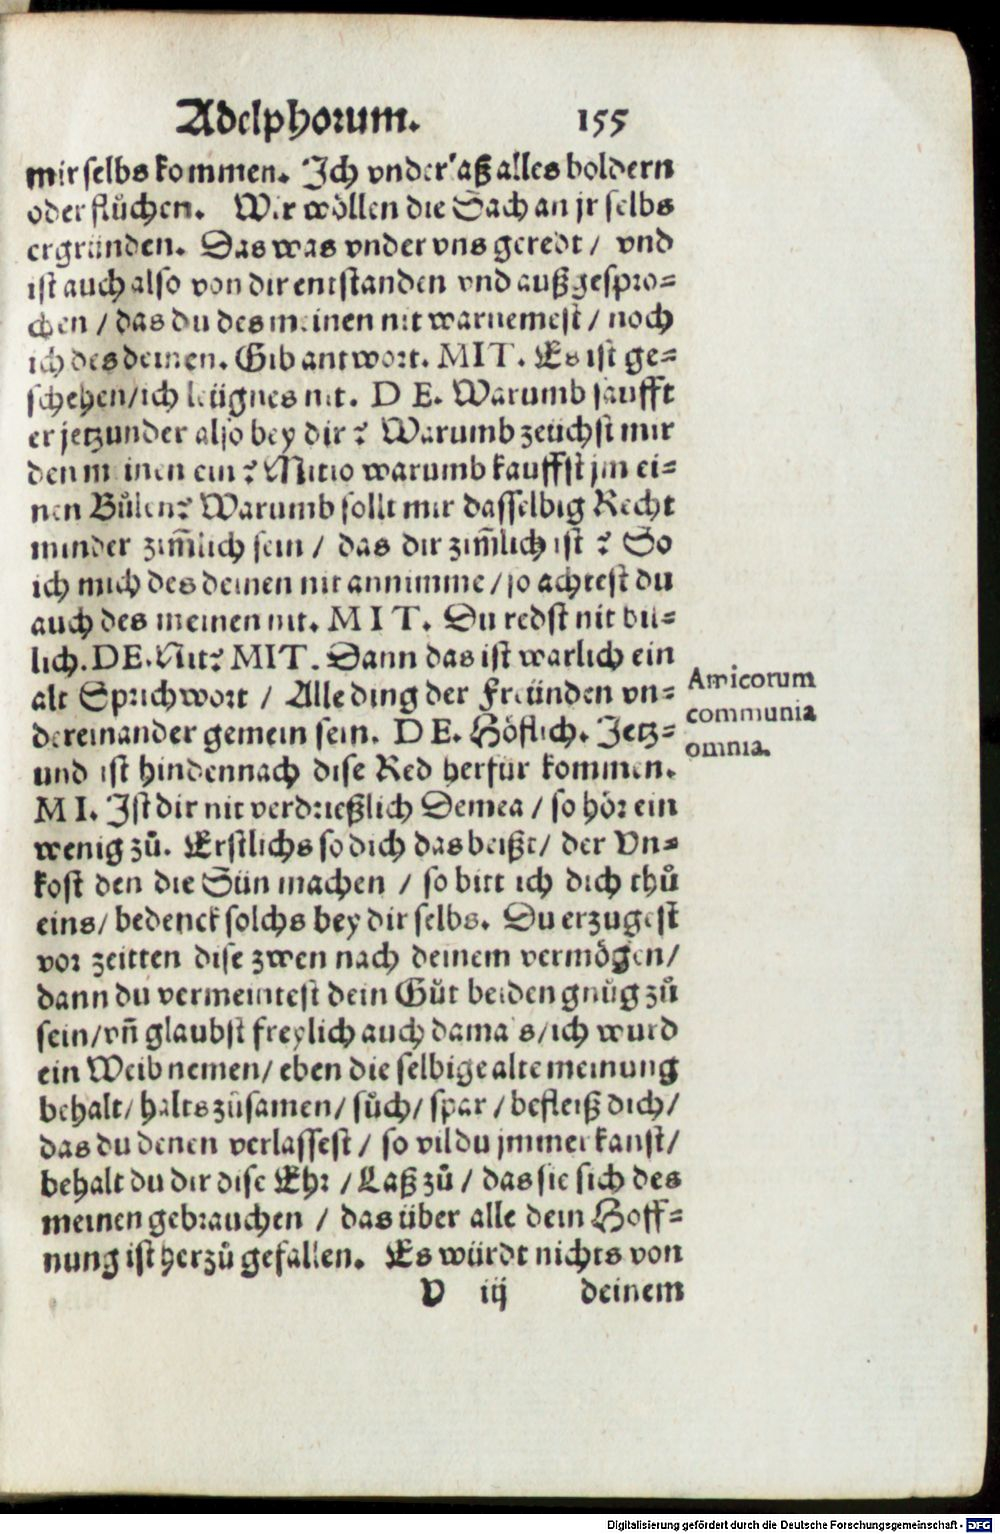 Adelphorum. 155
mir selbs kommen. Ich vnderlaß alles boldern
oder flůchen. Wir wöllen die Sach an jr selbs
ergründen. Das was vnder vns geredt / vnd
ist auch also von dir entstanden vnd außgespro=
chen / das du des meinen nit warnemest / noch
ich des deinen. Gib antwort. MIT. Es ist ge=
schehen/ich leügnes nit. D E. Warumb saufft
er jetzunder also bey dir? Warumb zeüchst mir
den meinen ein? Mitio warumb kauffst jm ei=
nen Bůlen? Warumb sollt mir dasselbig Recht
minder zim̃lich sein / das dir zim̃lich ist? So
ich mich des deinen nit annimme/so achtest du
auch des meinen nit. M I T. Du redst nit bil=
lich. DE. Nit? MIT. Dann das ist warlich ein
alt Sprichwort / Alle ding der Freünden vn=
dereinander gemein sein. D E. Höflich. Jetz=
und ist hindennach dise Red herfür kommen.
M I. Ist dir nit verdrießlich Demea / so hör ein
wenig zů. Erstlichs so dich das beißt/ der Vn=
kost den die Sün machen / so bitt ich dich thů
eins/ bedenck solchs bey dir selbs. Du erzugest
vor zeitten dise zwen nach deinem vermögen/
dann du vermeintest dein Gůt beiden gnůg zů
sein/vñ glaubst freylich auch damals/ich wurd
ein Weib nemen/ eben die selbige alte meinung
behalt/ halts zůsamen/ sůch/ spar / befleiß dich/
das du denen verlassest / so vil du jmmer kanst/
behalt du dir dise Ehr / Laß zů / das sie sich des
meinen gebrauchen / das über alle dein Hoff=
nung ist herzů gefallen. Es würdt nichts von
V iij deinem
Amicorum
communia
omnia.
Digitalisierung gefördert durch die Deutsche Forschungsgemeinschaft - DFG